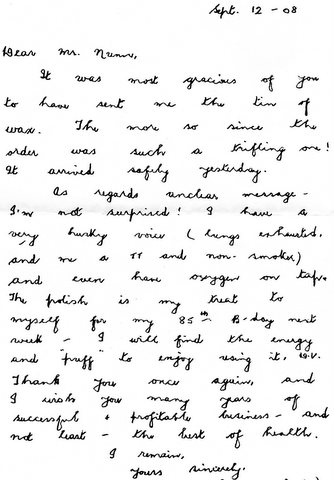 Sept. 12 - 08
Dear Mr. Nunn,
It was most gracious of you
to have sent me the tin of
wax. The more so since the
order was such a trifling one!
It arrived safely yesterday.
As regards unclear message -
I'm not surprised! I have a
very husky voice (lungs exhausted,
and me a TT and non-smoker)
and even have oxygen on tap.
The polish is my treat to
myself for my 85th B-day next
week - I will find the energy
and "puff" to enjoy using it, D.V.
Thank you once again, and
I wish you many years of
successful + profitable business - and
not least - the best of health.
I remain,
yours sincerely.